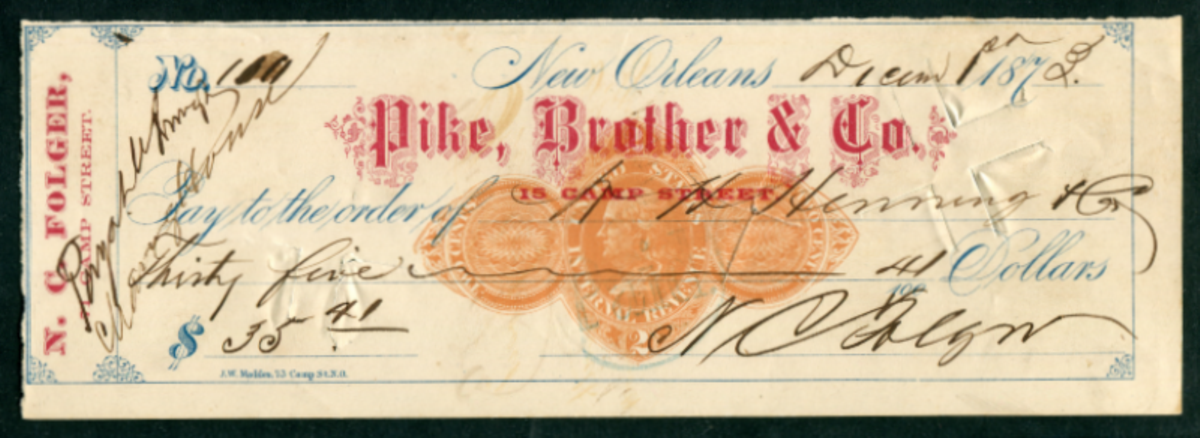 N. C FOLGER,
CAMP STREET.
Payable through
Clearing House
No. 100
New Orleans Decem 1st 1873.
Pike, Brother & Co.
15 CAMP STREET
Pay to the order of Henning & Co
Thirty five 41/100 Dollars
$ 35 41
N C Folger
INTERNAL REVENUE
2
J.W. Madden, 73 Camp St. N.O.